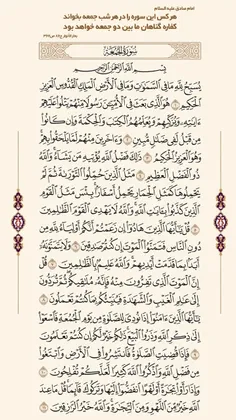 امام صادق علیه السلام
هر کس این سوره را در هر شب جمعه بخواند
کفاره گناهان ما بین دو جمعه خواهد بود
سُورَةُ الْجُمُعَةِ
بِسْمِ اللَّهِ الرَّحْمَنِ الرَّحِيمِ
يُسَبِّحُ لِلَّهِ مَا فِي السَّمَاوَاتِ وَمَا فِي الْأَرْضِ الْمَلِكِ الْقُدُّوسِ الْعَزِيزِ
الْحَكِيمِ ۝ هُوَ الَّذِي بَعَثَ فِي الْأُمِّيِّينَ رَسُولًا مِنْهُمْ يَتْلُو عَلَيْهِمْ
آيَاتِهِ وَيُزَكِّيهِمْ وَيُعَلِّمُهُمُ الْكِتَابَ وَالْحِكْمَةَ وَإِنْ كَانُوا
مِنْ قَبْلُ لَفِي ضَلَالٍ مُبِينٍ ۝ وَآخَرِينَ مِنْهُمْ لَمَّا يَلْحَقُوا بِهِمْ
وَهُوَ الْعَزِيزُ الْحَكِيمُ ۝ ذَلِكَ فَضْلُ اللَّهِ يُؤْتِيهِ مَنْ يَشَاءُ وَاللَّهُ
ذُو الْفَضْلِ الْعَظِيمِ ۝ مَثَلُ الَّذِينَ حُمِّلُوا التَّوْرَاةَ ثُمَّ لَمْ
يَحْمِلُوهَا كَمَثَلِ الْحِمَارِ يَحْمِلُ أَسْفَارًا بِئْسَ مَثَلُ الْقَوْمِ
الَّذِينَ كَذَّبُوا بِآيَاتِ اللَّهِ وَاللَّهُ لَا يَهْدِي الْقَوْمَ الظَّالِمِينَ ۝
قُلْ يَا أَيُّهَا الَّذِينَ هَادُوا إِنْ زَعَمْتُمْ أَنَّكُمْ أَوْلِيَاءُ لِلَّهِ مِنْ
دُونِ النَّاسِ فَتَمَنَّوُا الْمَوْتَ إِنْ كُنْتُمْ صَادِقِينَ ۝ وَلَا يَتَمَنَّوْنَهُ
أَبَدًا بِمَا قَدَّمَتْ أَيْدِيهِمْ وَاللَّهُ عَلِيمٌ بِالظَّالِمِينَ ۝ قُلْ
إِنَّ الْمَوْتَ الَّذِي تَفِرُّونَ مِنْهُ فَإِنَّهُ مُلَاقِيكُمْ ثُمَّ تُرَدُّونَ
إِلَى عَالِمِ الْغَيْبِ وَالشَّهَادَةِ فَيُنَبِّئُكُمْ بِمَا كُنْتُمْ تَعْمَلُونَ ۝
يَا أَيُّهَا الَّذِينَ آمَنُوا إِذَا نُودِيَ لِلصَّلَاةِ مِنْ يَوْمِ الْجُمُعَةِ فَاسْعَوْا
إِلَى ذِكْرِ اللَّهِ وَذَرُوا الْبَيْعَ ذَلِكُمْ خَيْرٌ لَكُمْ إِنْ كُنْتُمْ تَعْلَمُونَ
۝ فَإِذَا قُضِيَتِ الصَّلَاةُ فَانْتَشِرُوا فِي الْأَرْضِ وَابْتَغُوا
مِنْ فَضْلِ اللَّهِ وَاذْكُرُوا اللَّهَ كَثِيرًا لَعَلَّكُمْ تُفْلِحُونَ ۝
وَإِذَا رَأَوْا تِجَارَةً أَوْ لَهْوًا انْفَضُّوا إِلَيْهَا وَتَرَكُوكَ قَائِمًا قُلْ مَا عِنْدَ
اللَّهِ خَيْرٌ مِنَ اللَّهْوِ وَمِنَ التِّجَارَةِ وَاللَّهُ خَيْرُ الرَّازِقِينَ ۝